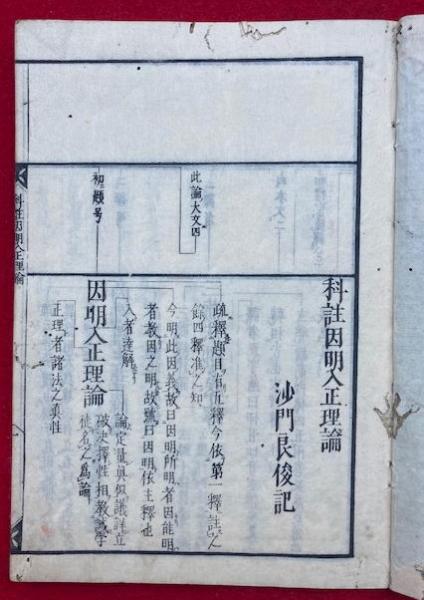 科註因明入正理論
沙門良俊記
此論大文四
疏釋題目有五釋今依第一釋註入
餘四釋准之知
初題号
因明入正理論
今明此因義故曰因明所明者因能明
者教因之明故號曰因明依主釋也
入者達解
論定量真似議詳立
破決擇性相教誡學
徒名之爲論
正理者諸法之真性
科註因明入正理論